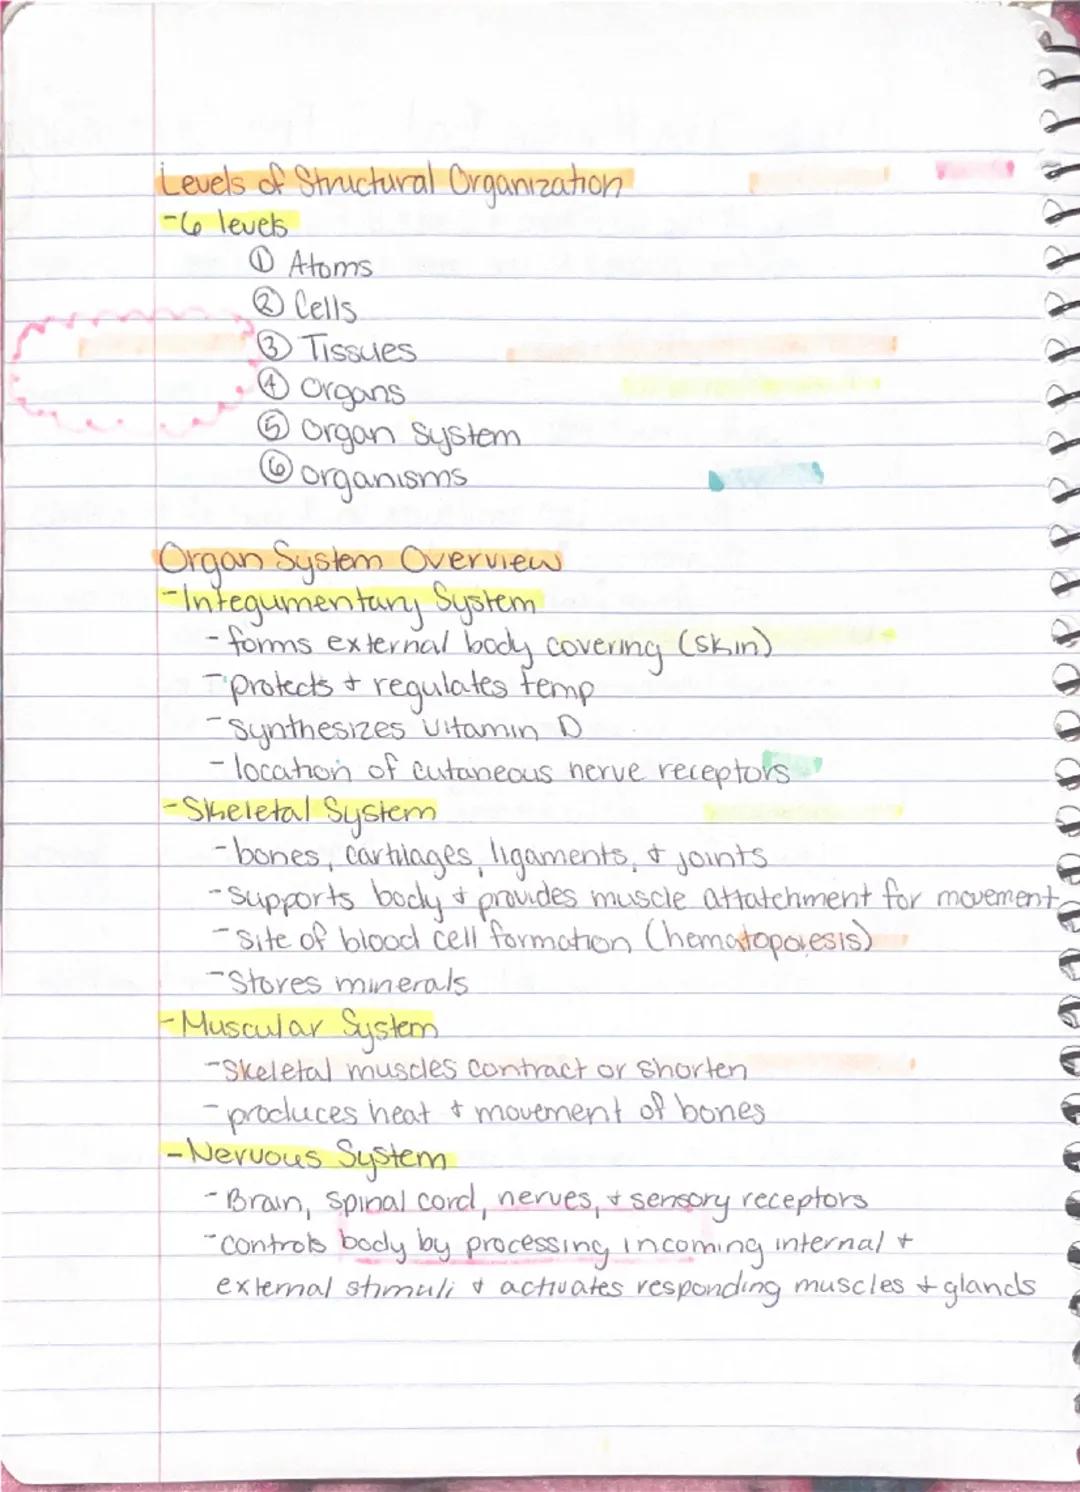 Levels of Structural Organization
-6 levels
① Atoms
② Cells
③ Tissues
④ Organs
⑤ Organ System
⑥ organisms
Organ System Overview
-Integumentary System
- forms external body covering (skin)
- protects + regulates temp
- Synthesizes Vitamin D
- location of cutaneous nerve receptors
-Skeletal System
- bones, cartilages, ligaments, + joints
- Supports body + provides muscle attatchment for movement
- Site of blood cell formation (hematopoiesis)
- Stores minerals
-Muscular System
- Skeletal muscles contract or shorten
- produces heat + movement of bones
- Nervous System
- Brain, spinal cord, nerves, + sensory receptors
- controls body by processing incoming internal +
external stimuli + activates responding muscles + glands